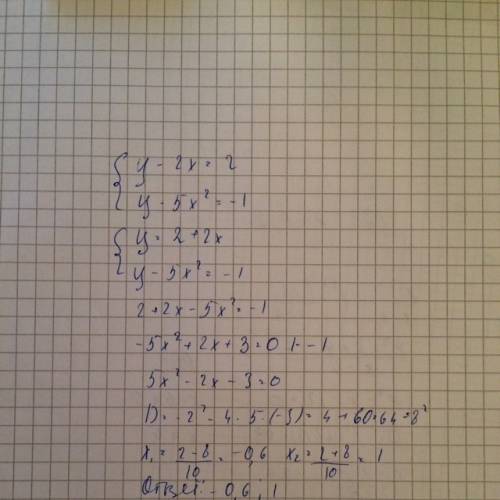 { y - 2x = 2
{ y - 5x² = -1
{ y = 2 + 2x
{ y - 5x² = -1
2 + 2x - 5x² = -1
-5x² + 2x + 3 = 0 | · -1
5x² - 2x - 3 = 0
D = -2² - 4 · 5 · (-3) = 4 + 60 = 64 = 8²
x₁ = (2 - 8)/10 = -0,6 x₂ = (2 + 8)/10 = 1
Ответ: -0,6 ; 1